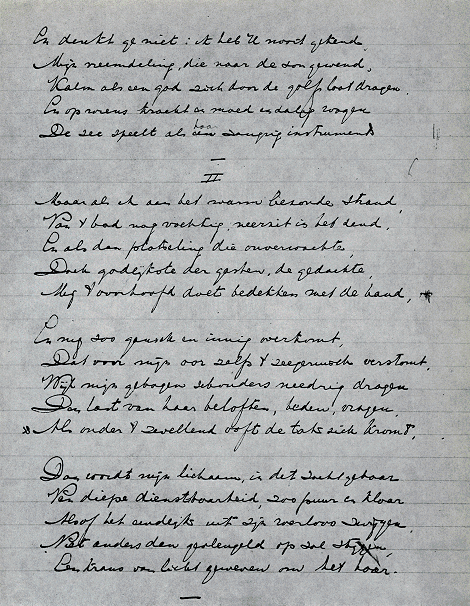 En denkt ge niet: ik heb U nooit gekend,
Mijn vreemdeling, die naar de zon gewend,
Kalm als een god zich door de golf laat dragen.
En op wiens kracht en moed en wagen
De zee speelt als haar zangrig instrument
II
Maar als ik aan het warm bezonde strand,
Van 't bad nog vochtig, neerzit in het zand,
En als dan plotseling die onverwachte,
Doch godlijkste der gasten, de gedachte,
Mij 't voorhoofd doet bedekken met de hand,
En mij zoo gansch en innig overkomt,
Dat voor mijn oor zelfs 't zeegeruisch verstomt,
Wijl mijn gebogen schouders needrig dragen
Den last van haar beloften, beden, vragen,
Als onder 't zwellend ooft de tak zich kromt,
Dan wordt mijn lichaam, in dit zacht gebaar
Van diepe dienstbaarheid, zoo puur en klaar
Alsof het eindlijk uit zijn
Niet anders dan gevleugeld op zal
Een krans van licht geweven om het haar.